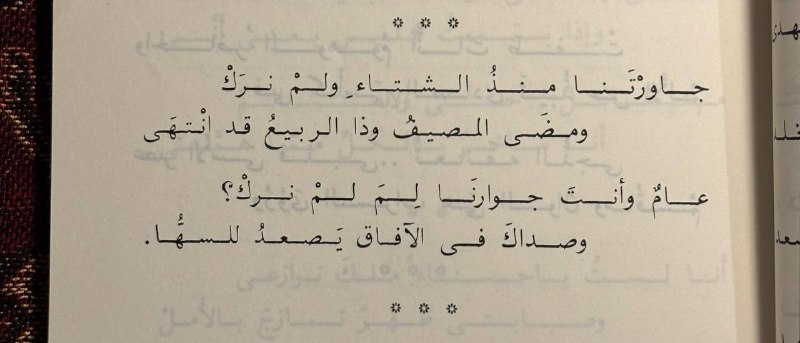 * * *
جاورْتَنا منذُ الشتاءِ ولمْ نركْ
ومضَى المصيفُ وذا الربيعُ قد انْتهَى
عامٌ وأنتَ جوارنَا لِمَ لمْ نركْ؟
وصداكَ فى الآفاق يَصعدُ للسهُّا.
* * *